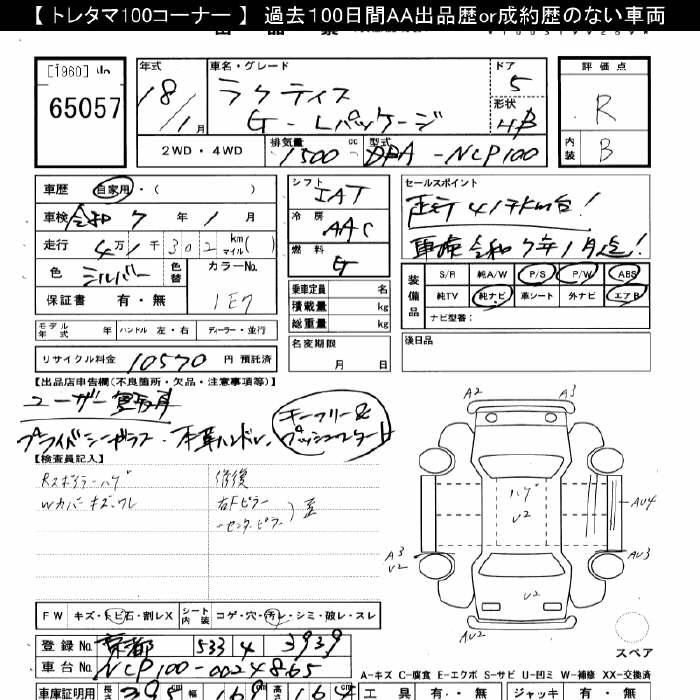 【 トレタマ100コーナー 】 過去100日間AA出品歴or成約歴のない車両
[1960]
65057
年式
18/1月
車名・グレード
ラクティス
G-Lパッケージ
ドア
5
形状
評価点
R
内装
B
2WD・4WD
排気量
1500cc
型式
DBA-NCP100
車歴
自家用・( )
車検
令和7年1月
走行
4万1千302km マイル( )
色
シルバー
色替
カラーNo.
1E7
保証書 有・無
モデル年式 年
ハンドル 左・右
ディーラー・並行
リサイクル料金 10570 円預託済
シフト
IAT
冷房
AAC
燃料
G
乗車定員 名
積載量 kg
総重量 kg
名変期限
月 日
セールスポイント
走行41千km台!
車検令和7年1月迄!
装備品
S/R 純A/W P/S P/W ABS
純TV 純ナビ 車シート 外ナビ エアB
ナビ型番:
後日品
【出品店申告欄(不良箇所・欠品・注意事項等)】
ユーザー買取車
プライバシーガラス・本革ハンドル
キーフリー&
プッシュスタート
【検査員記入】
Rスポイラーハゲ
Wカバーキズ、ワレ
修復
右Fピラー
センターピラー
歪
A2 A3
ハゲ
U2
AU4
A3
U2
AU3
U2
AU2
スペア
FW キズ・トビ石・割レX
シート内装 コゲ・穴・汚レ・シミ・破レ・スレ
登録No. 京都 533 4 3939
車台No. NCP100-0024865
A-キズ C-腐食 E-エクボ S-サビ U-凹ミ W-補修 XX-交換済
車庫証明用 長さ 395 幅 169 高さ 164cm
工具 有・無 ジャッキ 有・無